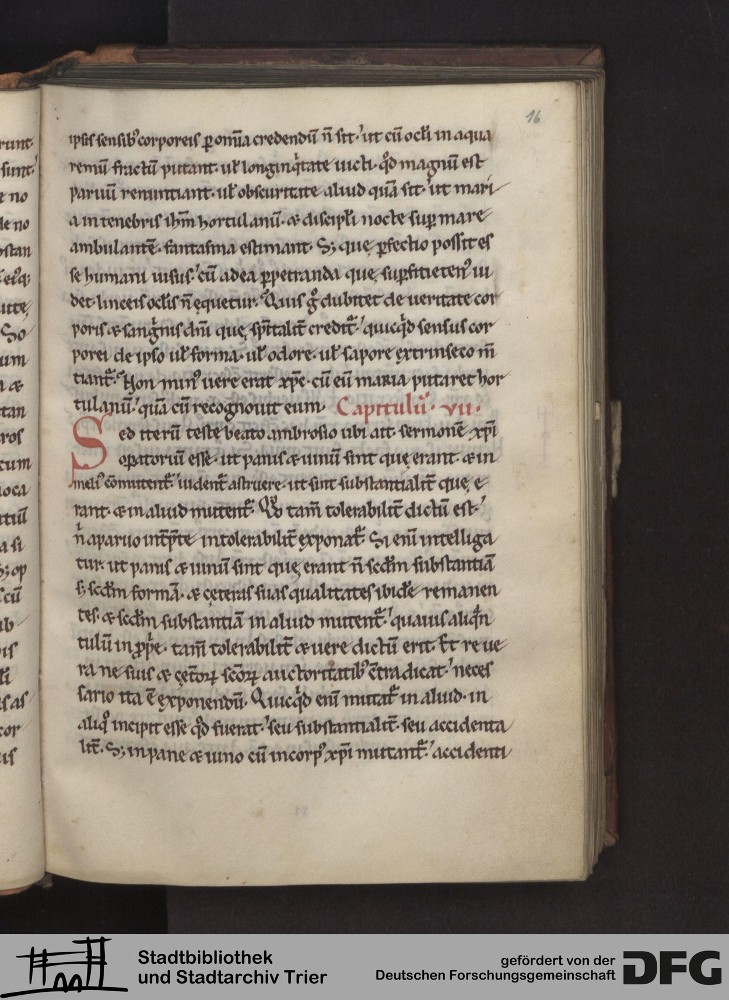 16
ipsis sensib; corporeis p omīa credendū n̄ sit. ut cū oc̄li in aqua
remū fractū putant. ul̄ longinq̇tate uicti. qd̄ magnū est
paruū renuntiant. ul̄ obscuritate aliud quā sit. ut mari
a in tenebris ih̄m hortulanū. & discipl̄i nocte sup mare
ambulantē. fantasma estimant. S; quę pfectio possit es
se humani uisus. cū ad ea ppetranda quę supsitietenꝰ ui
det linceis oc̄lis n̄ ęquetur. Quis g̊ dubitet de ueritate cor
poris & sang̍nis dn̄i quę sp̄italit̄ credit̄. quicq̍d sensus cor
porei de ipso ul̄ forma. ul̄ odore. ul̄ sapore extrinseco n̄
tiant̄. Non minꝰ uere erat xp̄c. cū eū maria putaret hor
tulanū. quā cū recognouit eum. Capitulū. vii.
Sed iterū teste beato ambrosio ubi ait. sermonē xp̄i
opatoriū esse. ut panis & uinū sint quę erant. & in
meliꝰ cōmutent̄. uident̄ astruere. ut sint substantialit̄ quę e
rant. & in aliud mutent̄. Qd̄ tam̄ tolerabilit̄ dictū est.
n̄ a paruo int̄pte intolerabilit̄ exponat̄. Si enī intelliga
tur. ut panis & uinū sint quę erant n̄ scd̄m substantiā
s; scd̄m formā. & ceteras suas qualitates ibidē remanen
tes. & scd̄m substantiā in aliud mutent̄. quāuis aliq̄n
tulū inpp̄e. tam̄ tolerabilit̄ & uere dictū erit. s̄t re ue
ra ne suis & ceꝉoꝝ sc̄oꝝ auctoritatib; c̄tradicat. neces
sario ita ē exponendū. Quicq̍d enī mutat̄ in aliud. in
aliq̊ incipit esse qd̄ fuerat. seu substantialit̄. seu accidenta
lit̄. S; in pane & uino cū in corpꝰ xp̄i mutant̄. accidenti
Stadtbibliothek
und Stadtarchiv Trier
gefördert von der
Deutschen Forschungsgemeinschaft
DFG